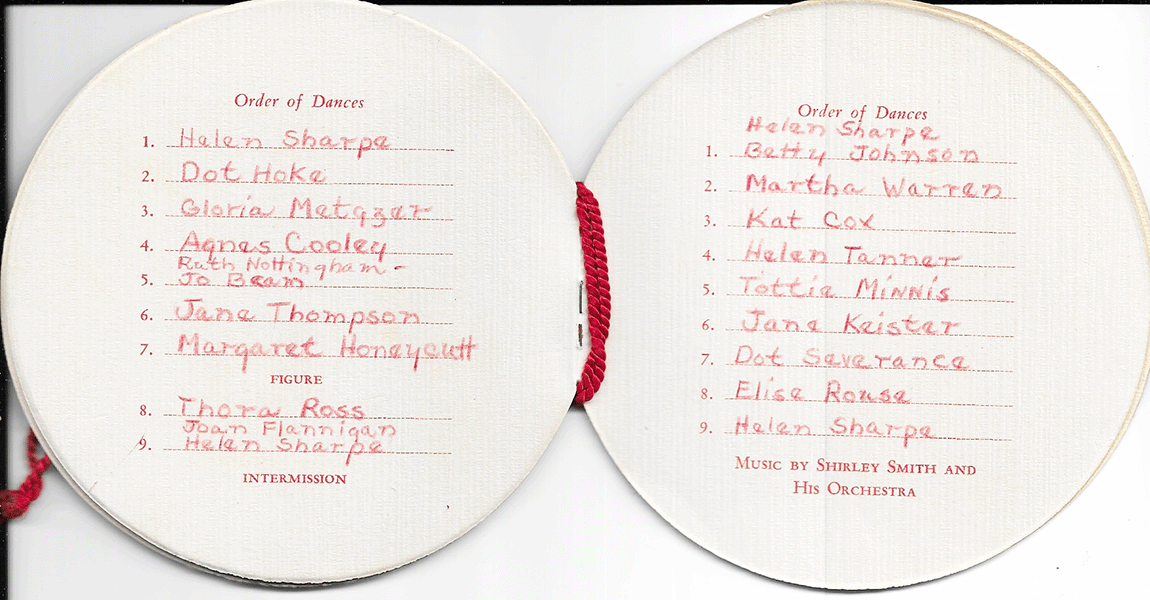 Order of Dances
1. Helen Sharpe
2. Dot Hoke
3. Gloria Metqzer
4. Agnes Cooley
Ruth Nottingham -
5. Jo Beam
6. Jane Thompson
7. Margaret Honeycutt
FIGURE
8. Thora Ross
Joan Flannigan
9. Helen Sharpe
INTERMISSION
Order of Dances
Helen Sharpe
1. Betty Johnson
2. Martha Warren
3. Kat Cox
4. Helen Tanner
5. Tottie Minnis
6. Jane Keister
7. Dot Severance
8. Elise Rouse
9. Helen Sharpe
MUSIC BY SHIRLEY SMITH AND
HIS ORCHESTRA